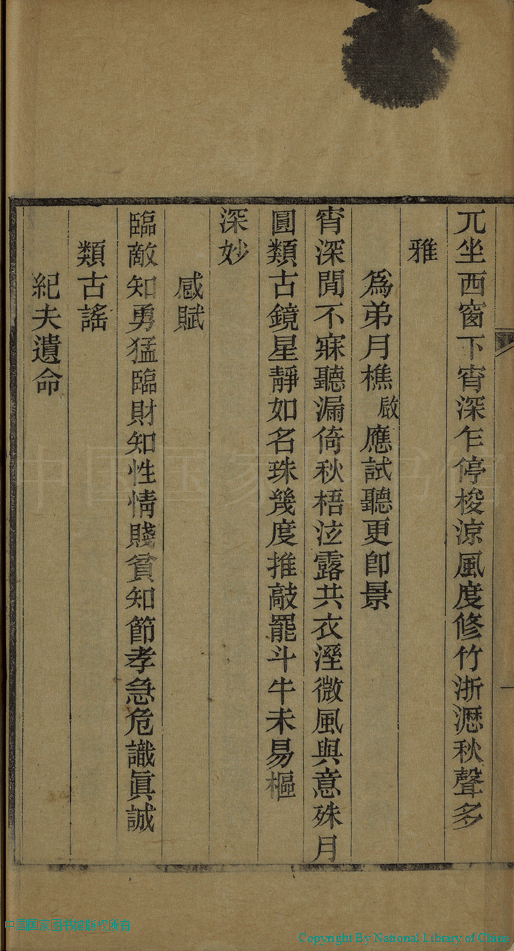 兀坐西窗下宵深乍停梭涼風度修竹浙瀝秋聲多
雅
爲弟月樵啟應試聽更卽景
宵深閒不寐聽漏倚秋梧泣露共衣溼微風與意殊月
圓類古鏡星靜如名珠幾度推敲罷斗牛未易樞
深妙
感賦
臨敵知勇猛臨財知性情賤貧知節孝急危識眞誠
類古謠
紀夫遺命
中国国家图书馆
Copyright By National Library of China